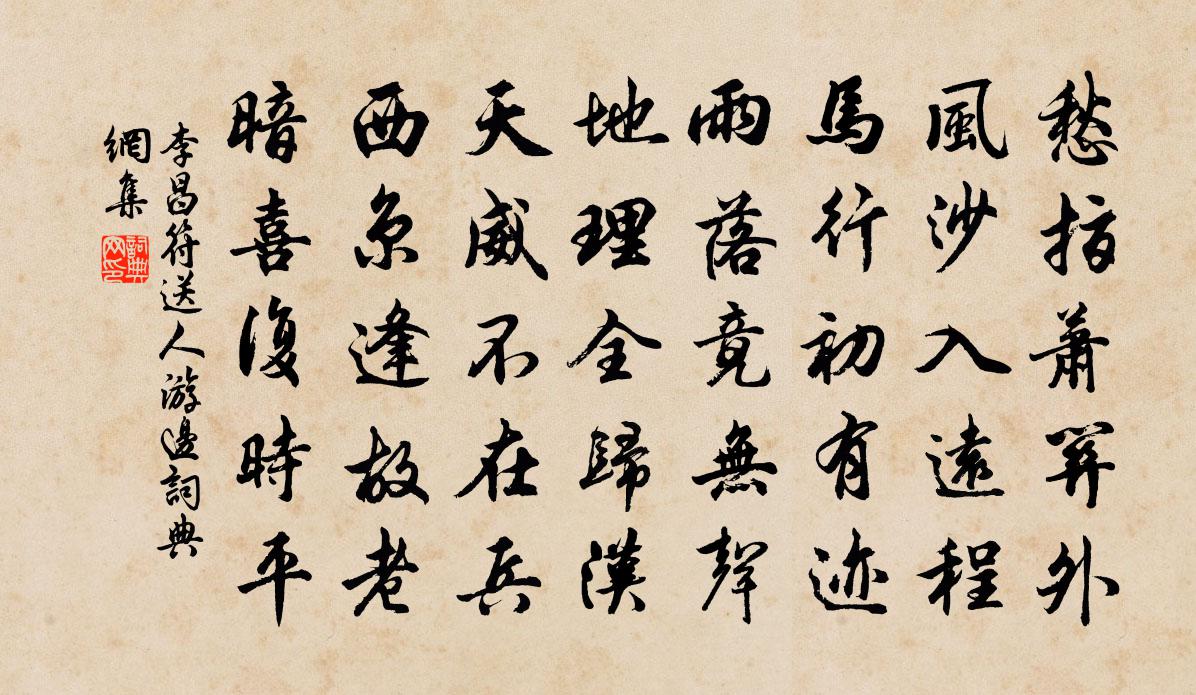 愁指蕭關外
風沙入遠程
馬行初有迹
雨落竟無聲
地理全歸漢
天威不在兵
西京逢故老
暗喜復時平
李昌符送人游邊詞典
網集
詞典
网印